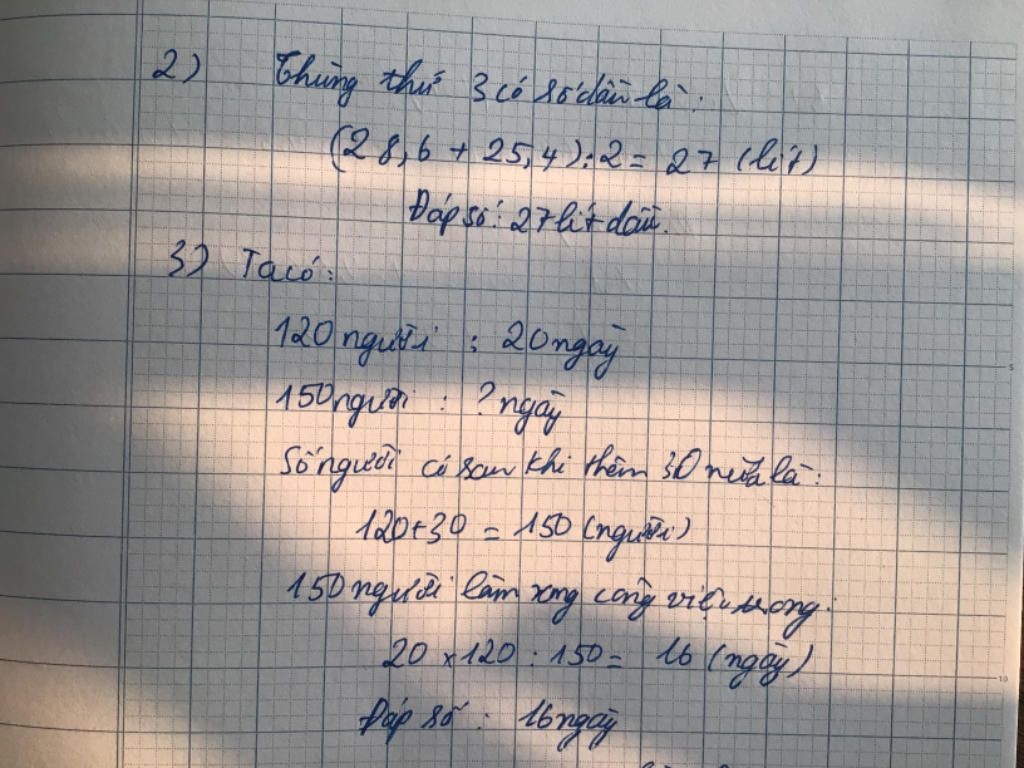 2) Thùng thứ 3 có số dầu là:
(28,6 + 25,4) : 2 = 27 (lít)
Đáp số: 27 lít dầu.
3) Ta có:
120 người : 20 ngày
150 người : ? ngày
Số người có sau khi thêm 30 nữa là:
120 + 30 = 150 (người)
150 người làm xong công việc trong:
20 x 120 : 150 = 16 (ngày)
Đáp số : 16 ngày